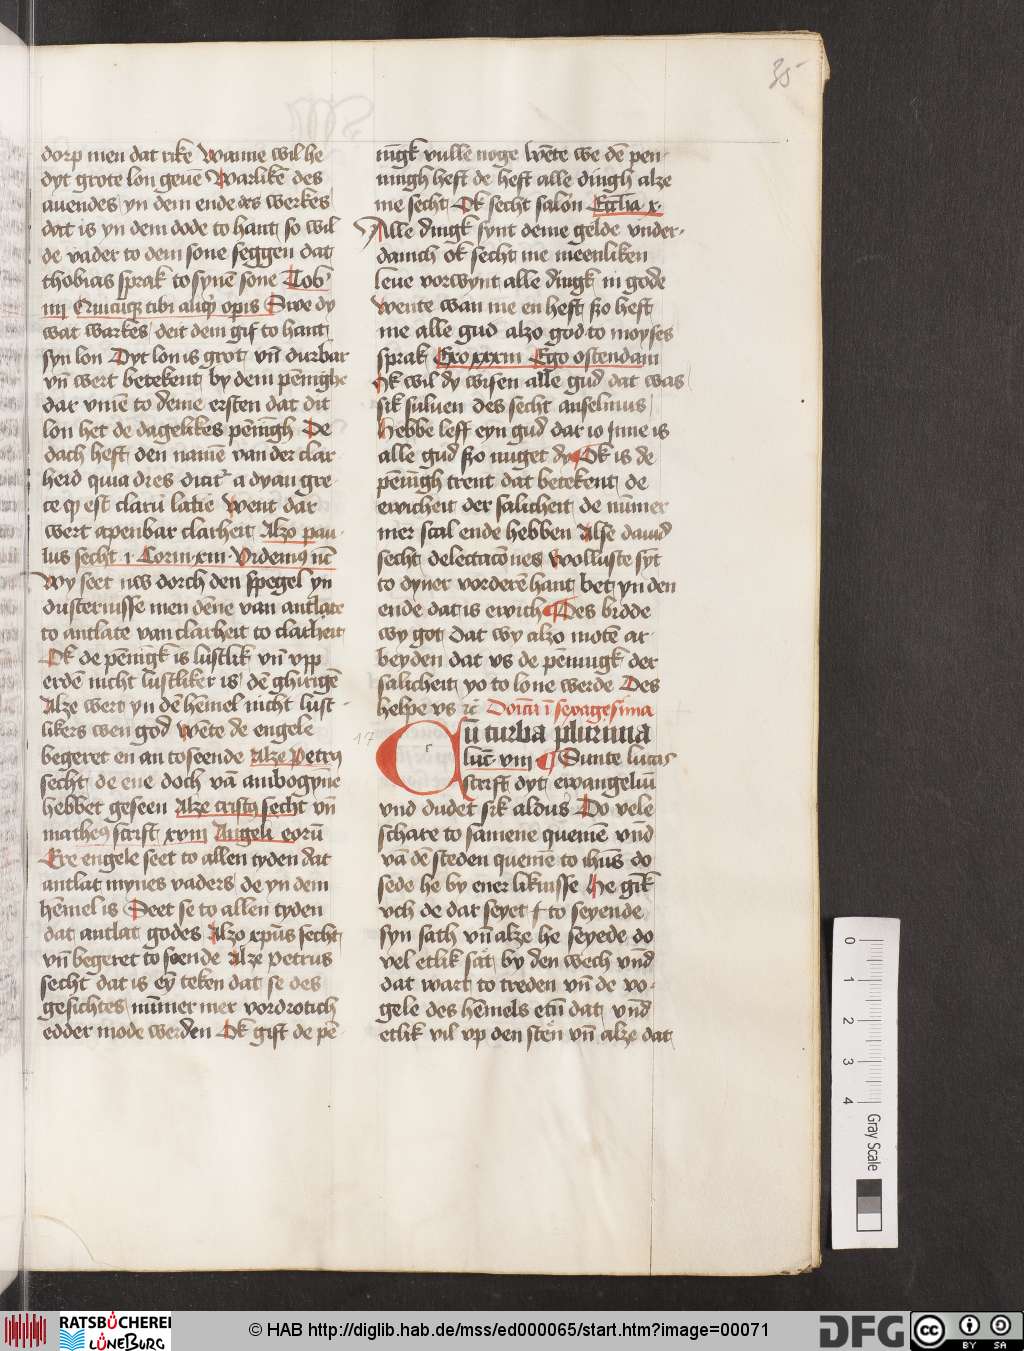 35
dorp men dat rike Wanne wil he
dyt grote lon geuē Warliken des
auendes yn dem ende des werkes
dat is yn dem dode to hant so wil
de vader to dem sone seggen dat
thobias sprak to synē sone Tob
iiii Quicūqꝫ tibi aliqꝫ opis Swe dy
wat warkes deit dem gif to hant
syn lon Dyt lon is grot vn̄ durbar
vn̄ wert betekent by dem pēnighe
dar vmē to deme ersten dat dit
lon het de dagelikes pēnigh De
dach heft den namē van der clar
herd quia dies dicit' a dyan gre
ce qꝫ est clarū latīe Went dar
wert apenbar clarheit Alzo pau
lus secht i Corin xiii Videmꝰ nūc
Wy seet nw dorch den spegel yn
dusternisse men dēne van antlate
to antlate van clarheit to clarheit
Ok de pēnigk is lustlik vn̄ vpp
erdē nicht lustliker is dē ghirigē
Alze wert yn dē hēmel nicht lust
likers wen god wēte de engele
begeret en an to seende Alze Petrꝰ
secht de ene doch vā anbogyne
hebbet geseen Alze cristꝰ secht vn̄
matheꝰ scrift xviii Angeli eorū
Ere engele seet to allen tyden dat
antlat mynes vaders de yn dem
hēmel is Seet se to allen tyden
dat antlat godes Alzo xpūs secht
vn̄ begeret to seende Alze Petrus
secht dat is eȳ teken dat se des
gesichtes nūmer mer vordrotich
edder mode werden Ok gift de pē
nīgk vulle noge Wēte we dē pen
ningh heft de heft alle dingh alze
me secht Ok secht salon Ecclīa x
Alle dingk synt deme gelde vnder
danich ok secht me meenliken
leue vorwynt alle dingk in gode
wente wan me en heft ßo heft
me alle gud alzo god to moyses
sprak Exo xxxiii Ego ostendam
Ik wil dy wisen alle gud dat was
sik suluen des secht anselmus
Hebbe leff eyn gud dar io ynne is
alle gud ßo nuget dy Ok is de
pēnīgh trent dat betekent de
ewicheit der salicheit de nūmer
mer scal ende hebben Alse dauid
secht delectacōnes Wolluste syt
to dyner vorderē hant bet yn den
ende dat is ewich Des bidde
wy got dat wy alzo motē ar
beyden dat vs de pēningk der
salicheit yo to lone werde Des
helpe vs ꝛc̄ Doīca ī sexagesima
17
Cū turba plurima
luc̄ viii Sunte lucas
scrift dyt ewangeliū
vnd dudet sik aldus Do vele
schare to samene quemē vnd
vā dē steden quemē to ihūs do
sede he by ener liknisse He gik
vth de dar seyet to seyende
syn sath vn̄ alze he seyede do
vel etlik sāt by den wech vnd
dat wart to treden vn̄ de vo
gele des hēmels etn̄ dat vnd
etlik vil vp den stēn vn̄ alze dat
0 1 2 3 4 Gray Scale
RATSBÜCHEREI
LÜNEBURG
© HAB http://diglib.hab.de/mss/ed000065/start.htm?image=00071
DFG
cc BY SA